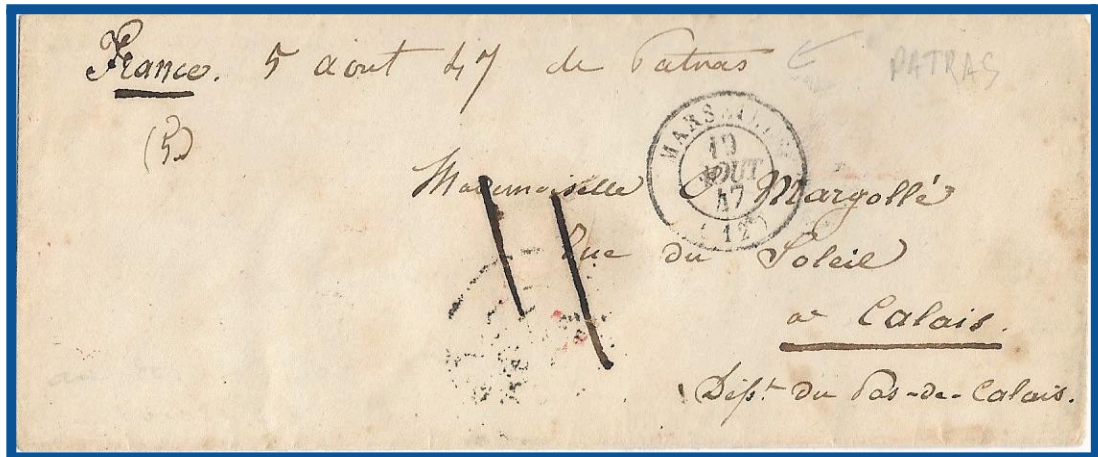 France. 5 aout 47 de Patras PATRAS
(5)
MARSEILLE
19
AOUT
47
(12)
Mademoiselle C Margollé
Rue du Soleil
a Calais.
Dépt. du Pas-de-Calais.